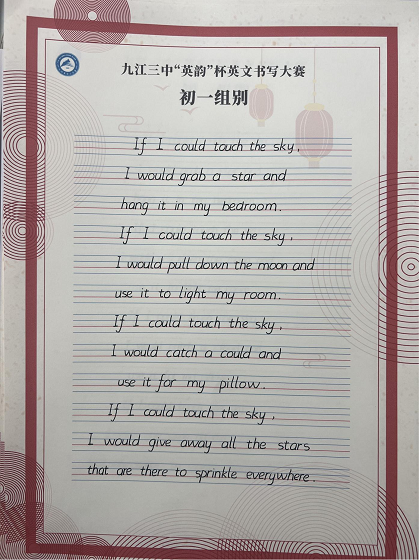 九江三中“英韵”杯英文书写大赛
初一组别
If I could touch the sky,
I would grab a star and
hang it in my bedroom.
If I could touch the sky,
I would pull down the moon and
use it to light my room.
If I could touch the sky,
I would catch a could and
use it for my pillow.
If I could touch the sky,
I would give away all the stars
that are there to sprinkle everywhere.